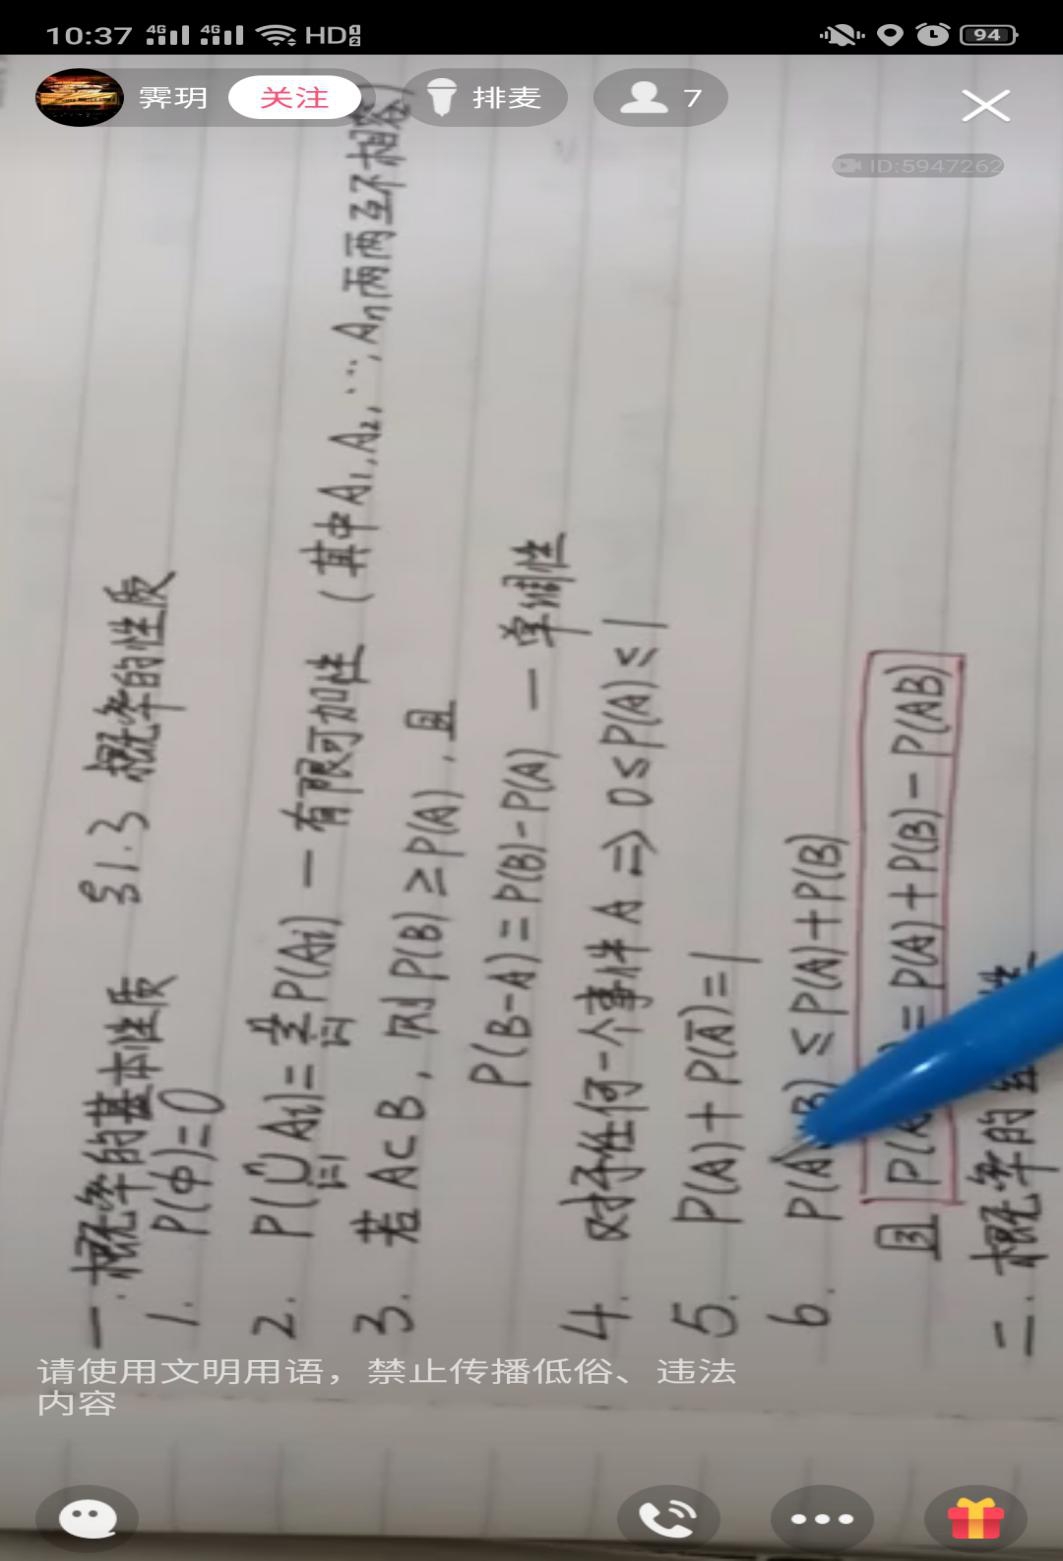 10:37 4G 4G HD 1 2 94
霁玥 关注 排麦 7
ID:5947262
§1.3 概率的性质
一. 概率的基本性质
1. P(φ)=0
2. P(⋃Ai)=ΣP(Ai) — 有限可加性 (其中A1,A2,…,An两两互不相容)
n i=1 n i=1
3. 若A⊂B, 则P(B)≥P(A),且
P(B-A)=P(B)-P(A) — 单调性
4. 对于任何一个事件A⇒0≤P(A)≤1
5. P(A)+P(Ā)=1
6. P(A B)≤P(A)+P(B)
且 P(A )=P(A)+P(B)-P(AB)
二. 概率的
请使用文明用语，禁止传播低俗、违法
内容